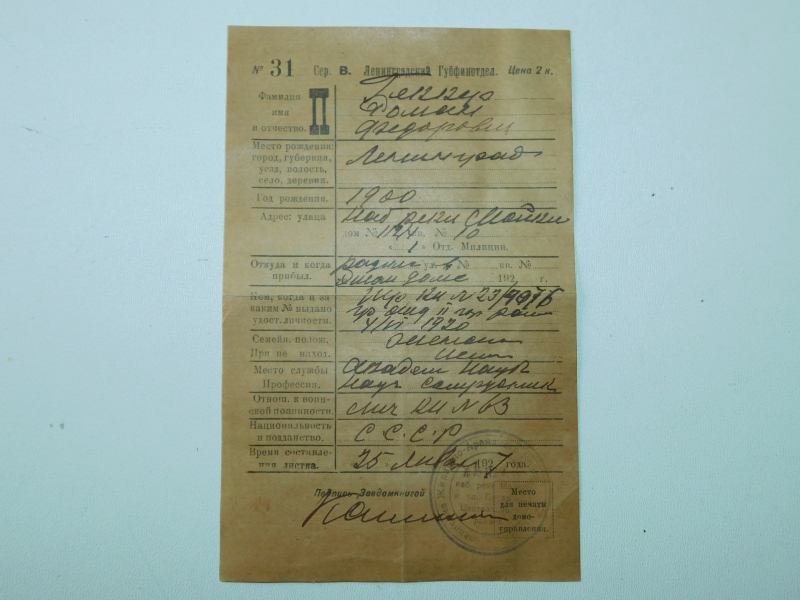 № 31 Сер. В. Ленинградский Губфинотдел. Цена 2 к.
Фамилия
имя
и отчество.
П
Роман
Федорович
Место рождения:
город, губерния,
уезд, волость,
село, деревня.
Ленинград
Год рождения.
1900
Адрес: улица
наб реки Мойки
дом № 124 кв. 10
„ 1 “ Отд. Милиции.
Откуда и когда
прибыл.
родил ул. № кв. №
в этом доме 192 г.
Кем, когда и за
каким № выдано
удост. личности.
Тр. кн № 23/
II гор район
1920
Семейн. полож.
При не наход.
женат
Место службы
Профессия.
Академ Наук
Науч Сотрудник
Отнош. к воин-
ской повинности.
лич кн № 63
Национальность
и подданство.
С.С.С.Р
Время составле-
ния листка.
25 Января 1927 года.
Подпись Заведомкнигой
Место
для печати
домо-
управления.